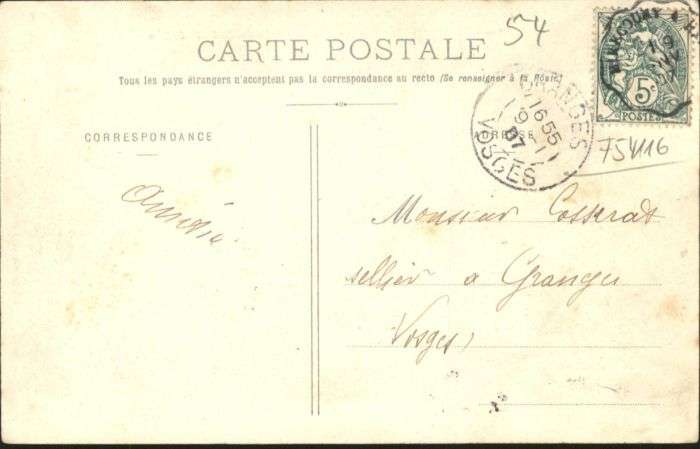 54
CARTE POSTALE
Tous les pays étrangers n'acceptent pas la correspondance au recto (Se renseigner à la Poste)
CORRESPONDANCE
ADRESSE
GRANGES
16 55
9 - 1
07
VOSGES
5c
POSTES
754116
Amédée
Monsieur Cosserat
sellier à Granges
Vosges